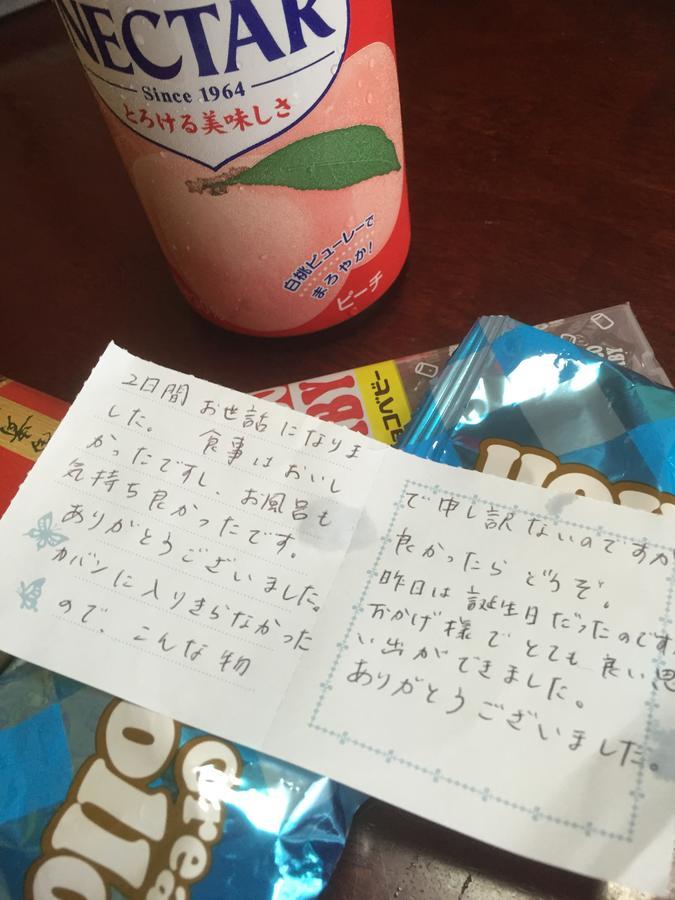 NECTAR
Since 1964
とろける美味しさ
白桃ピューレーで
まろやか!
ピーチ
2日間 お世話になりま
した。 食事はおいし
かったですし、お風呂も
気持ち良かったです。
ありがとうございました。
カバンに入りきらなかった
ので、こんな物
で申し訳ないのですが
良かったら どうぞ。
昨日は誕生日だったのです
おかげ様でとても良い思
い出ができました。
ありがとうございました。
Crea
ollo